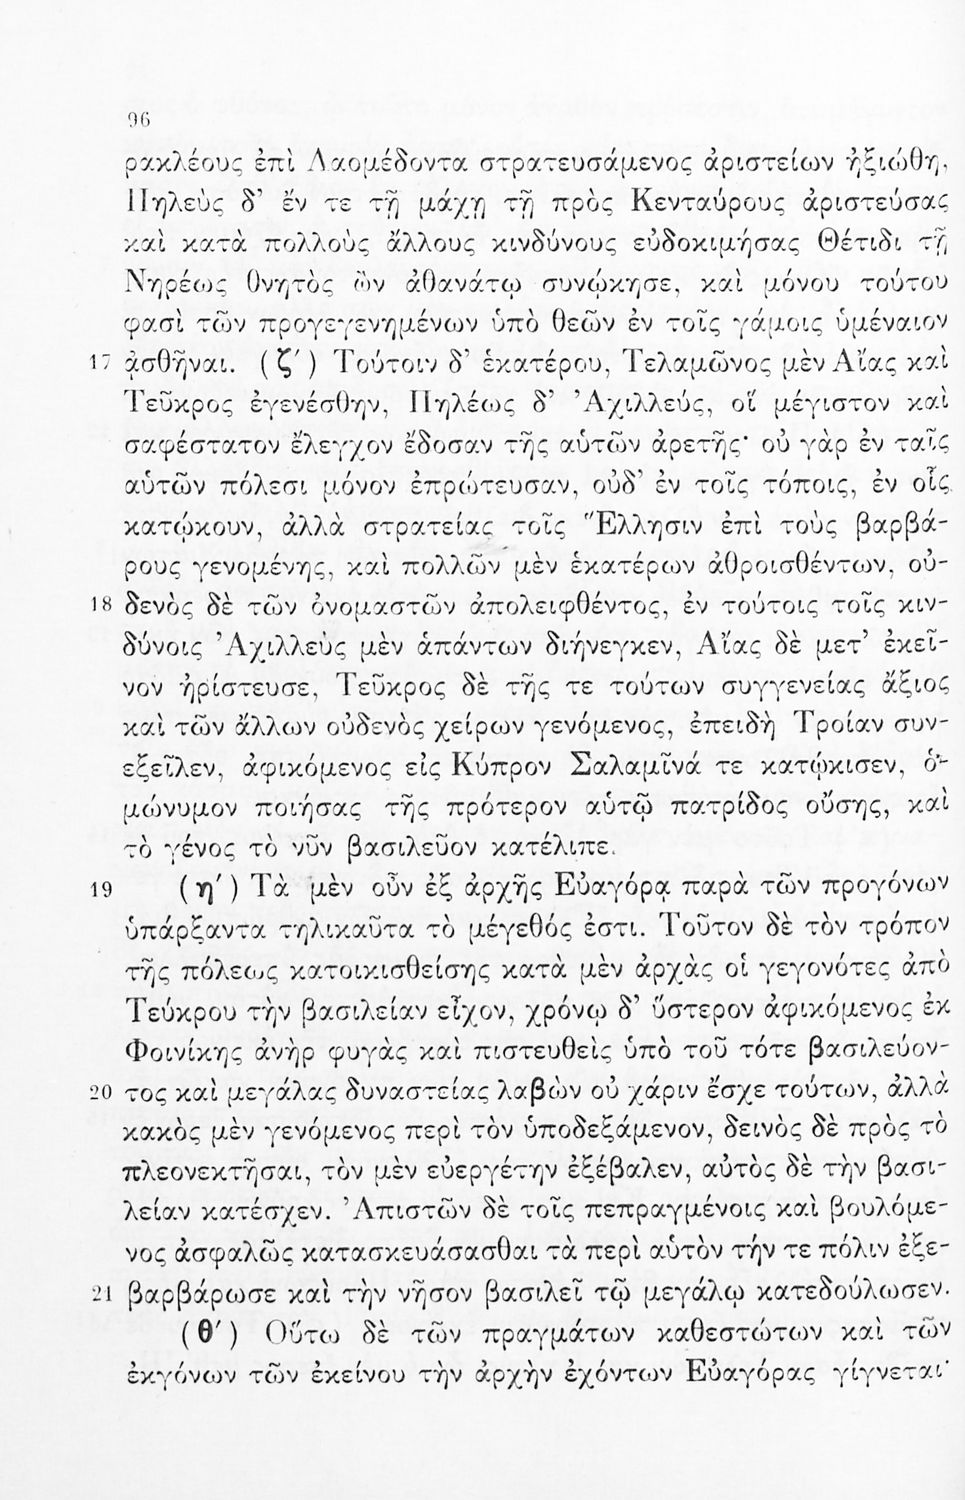 96
ρακλέους ἐπὶ Λαομέδοντα στρατευσάμενος ἀριστείων ἠξιώθη,
Πηλεὺς δ’ ἔν τε τῇ μάχῃ τῇ πρὸς Κενταύρους ἀριστεύσας
καὶ κατὰ πολλοὺς ἄλλους κινδύνους εὐδοκιμήσας Θέτιδι τῇ
Νηρέως θνητὸς ὢν ἀθανάτῳ συνῴκησε, καὶ μόνου τούτου
φασὶ τῶν προγεγενημένων ὑπὸ θεῶν ἐν τοῖς γάμοις ὑμέναιον
17 ᾀσθῆναι. (ζ′) Τούτοιν δ’ ἑκατέρου, Τελαμῶνος μὲν Αἴας καὶ
Τεῦκρος ἐγενέσθην, Πηλέως δ’ Ἀχιλλεύς, οἳ μέγιστον καὶ
σαφέστατον ἔλεγχον ἔδοσαν τῆς αὑτῶν ἀρετῆς· οὐ γὰρ ἐν ταῖς
αὑτῶν πόλεσι μόνον ἐπρώτευσαν, οὐδ’ ἐν τοῖς τόποις, ἐν οἷς
κατῴκουν, ἀλλὰ στρατείας τοῖς Ἕλλησιν ἐπὶ τοὺς βαρβά-
ρους γενομένης, καὶ πολλῶν μὲν ἑκατέρων ἀθροισθέντων, οὐ-
18 δενὸς δὲ τῶν ὀνομαστῶν ἀπολειφθέντος, ἐν τούτοις τοῖς κιν-
δύνοις Ἀχιλλεὺς μὲν ἁπάντων διήνεγκεν, Αἴας δὲ μετ’ ἐκεῖ-
νον ἠρίστευσε, Τεῦκρος δὲ τῆς τε τούτων συγγενείας ἄξιος
καὶ τῶν ἄλλων οὐδενὸς χείρων γενόμενος, ἐπειδὴ Τροίαν συν-
εξεῖλεν, ἀφικόμενος εἰς Κύπρον Σαλαμῖνά τε κατῴκισεν, ὁ-
μώνυμον ποιήσας τῆς πρότερον αὐτῷ πατρίδος οὔσης, καὶ
τὸ γένος τὸ νῦν βασιλεῦον κατέλιπε.
19 (η′) Τὰ μὲν οὖν ἐξ ἀρχῆς Εὐαγόρᾳ παρὰ τῶν προγόνων
ὑπάρξαντα τηλικαῦτα τὸ μέγεθός ἐστι. Τοῦτον δὲ τὸν τρόπον
τῆς πόλεως κατοικισθείσης κατὰ μὲν ἀρχὰς οἱ γεγονότες ἀπὸ
Τεύκρου τὴν βασιλείαν εἶχον, χρόνῳ δ’ ὕστερον ἀφικόμενος ἐκ
Φοινίκης ἀνὴρ φυγὰς καὶ πιστευθεὶς ὑπὸ τοῦ τότε βασιλεύον-
20 τος καὶ μεγάλας δυναστείας λαβὼν οὐ χάριν ἔσχε τούτων, ἀλλὰ
κακὸς μὲν γενόμενος περὶ τὸν ὑποδεξάμενον, δεινὸς δὲ πρὸς τὸ
πλεονεκτῆσαι, τὸν μὲν εὐεργέτην ἐξέβαλεν, αὐτὸς δὲ τὴν βασι-
λείαν κατέσχεν. Ἀπιστῶν δὲ τοῖς πεπραγμένοις καὶ βουλόμε-
νος ἀσφαλῶς κατασκευάσασθαι τὰ περὶ αὑτὸν τήν τε πόλιν ἐξε-
21 βαρβάρωσε καὶ τὴν νῆσον βασιλεῖ τῷ μεγάλῳ κατεδούλωσεν.
(θ′) Οὕτω δὲ τῶν πραγμάτων καθεστώτων καὶ τῶν
ἐκγόνων τῶν ἐκείνου τὴν ἀρχὴν ἐχόντων Εὐαγόρας γίγνεται·